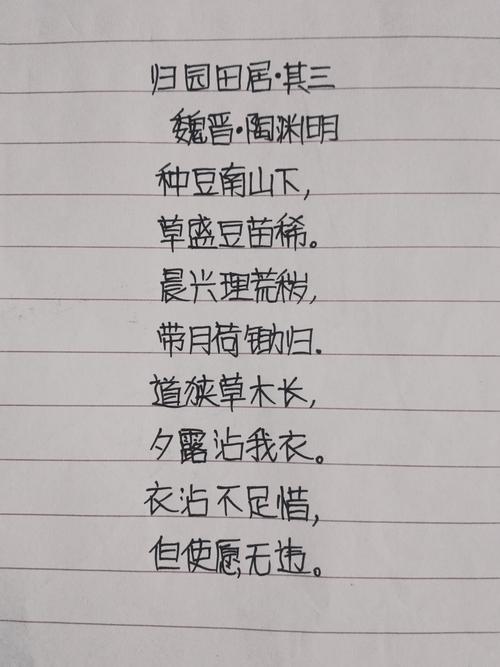 归园田居·其三
魏晋·陶渊明
种豆南山下，
草盛豆苗稀。
晨兴理荒秽，
带月荷锄归.
道狭草木长，
夕露沾我衣。
衣沾不足惜，
但使愿无违。